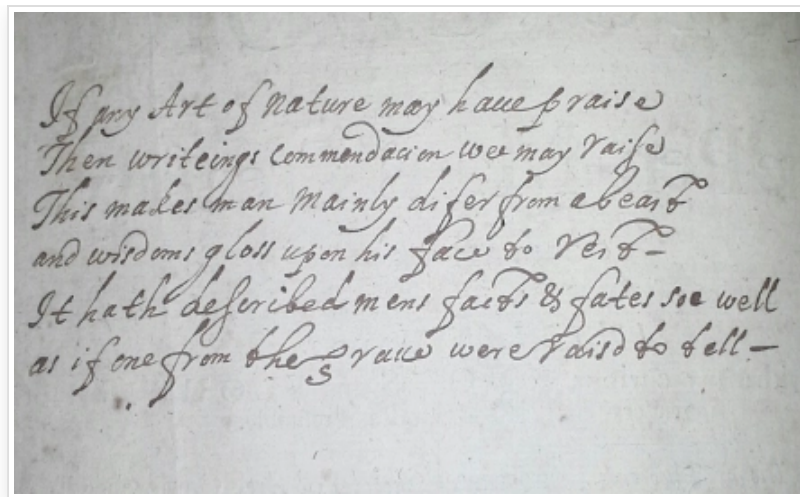 If any Art of Nature may haue praise
Then writeings Commendacion wee may raise
This makes man Mainly difer from a beast
and wisdoms gloss upon his face to rest
It hath described mens facts & fates soe well
as if one from the graue were raisd to tell